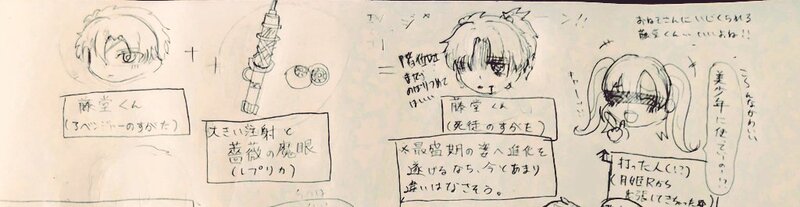 藤堂くん
(アベンジャーのすがた)
大きい注射と
薔薇の魔眼
(レプリカ)
階位は
まだ
のぼりつめて
ない
藤堂くん
(死徒のすがた)
*最盛期の姿へ進化を
遂げるなら、今とあまり
違いはなさそう。
おねえさんにいじくられる
藤堂くん…いいよね!!
こんなかわいい
美少年に使っていいの!?
打った人(!?)
(月姫Rから
出張してきちった